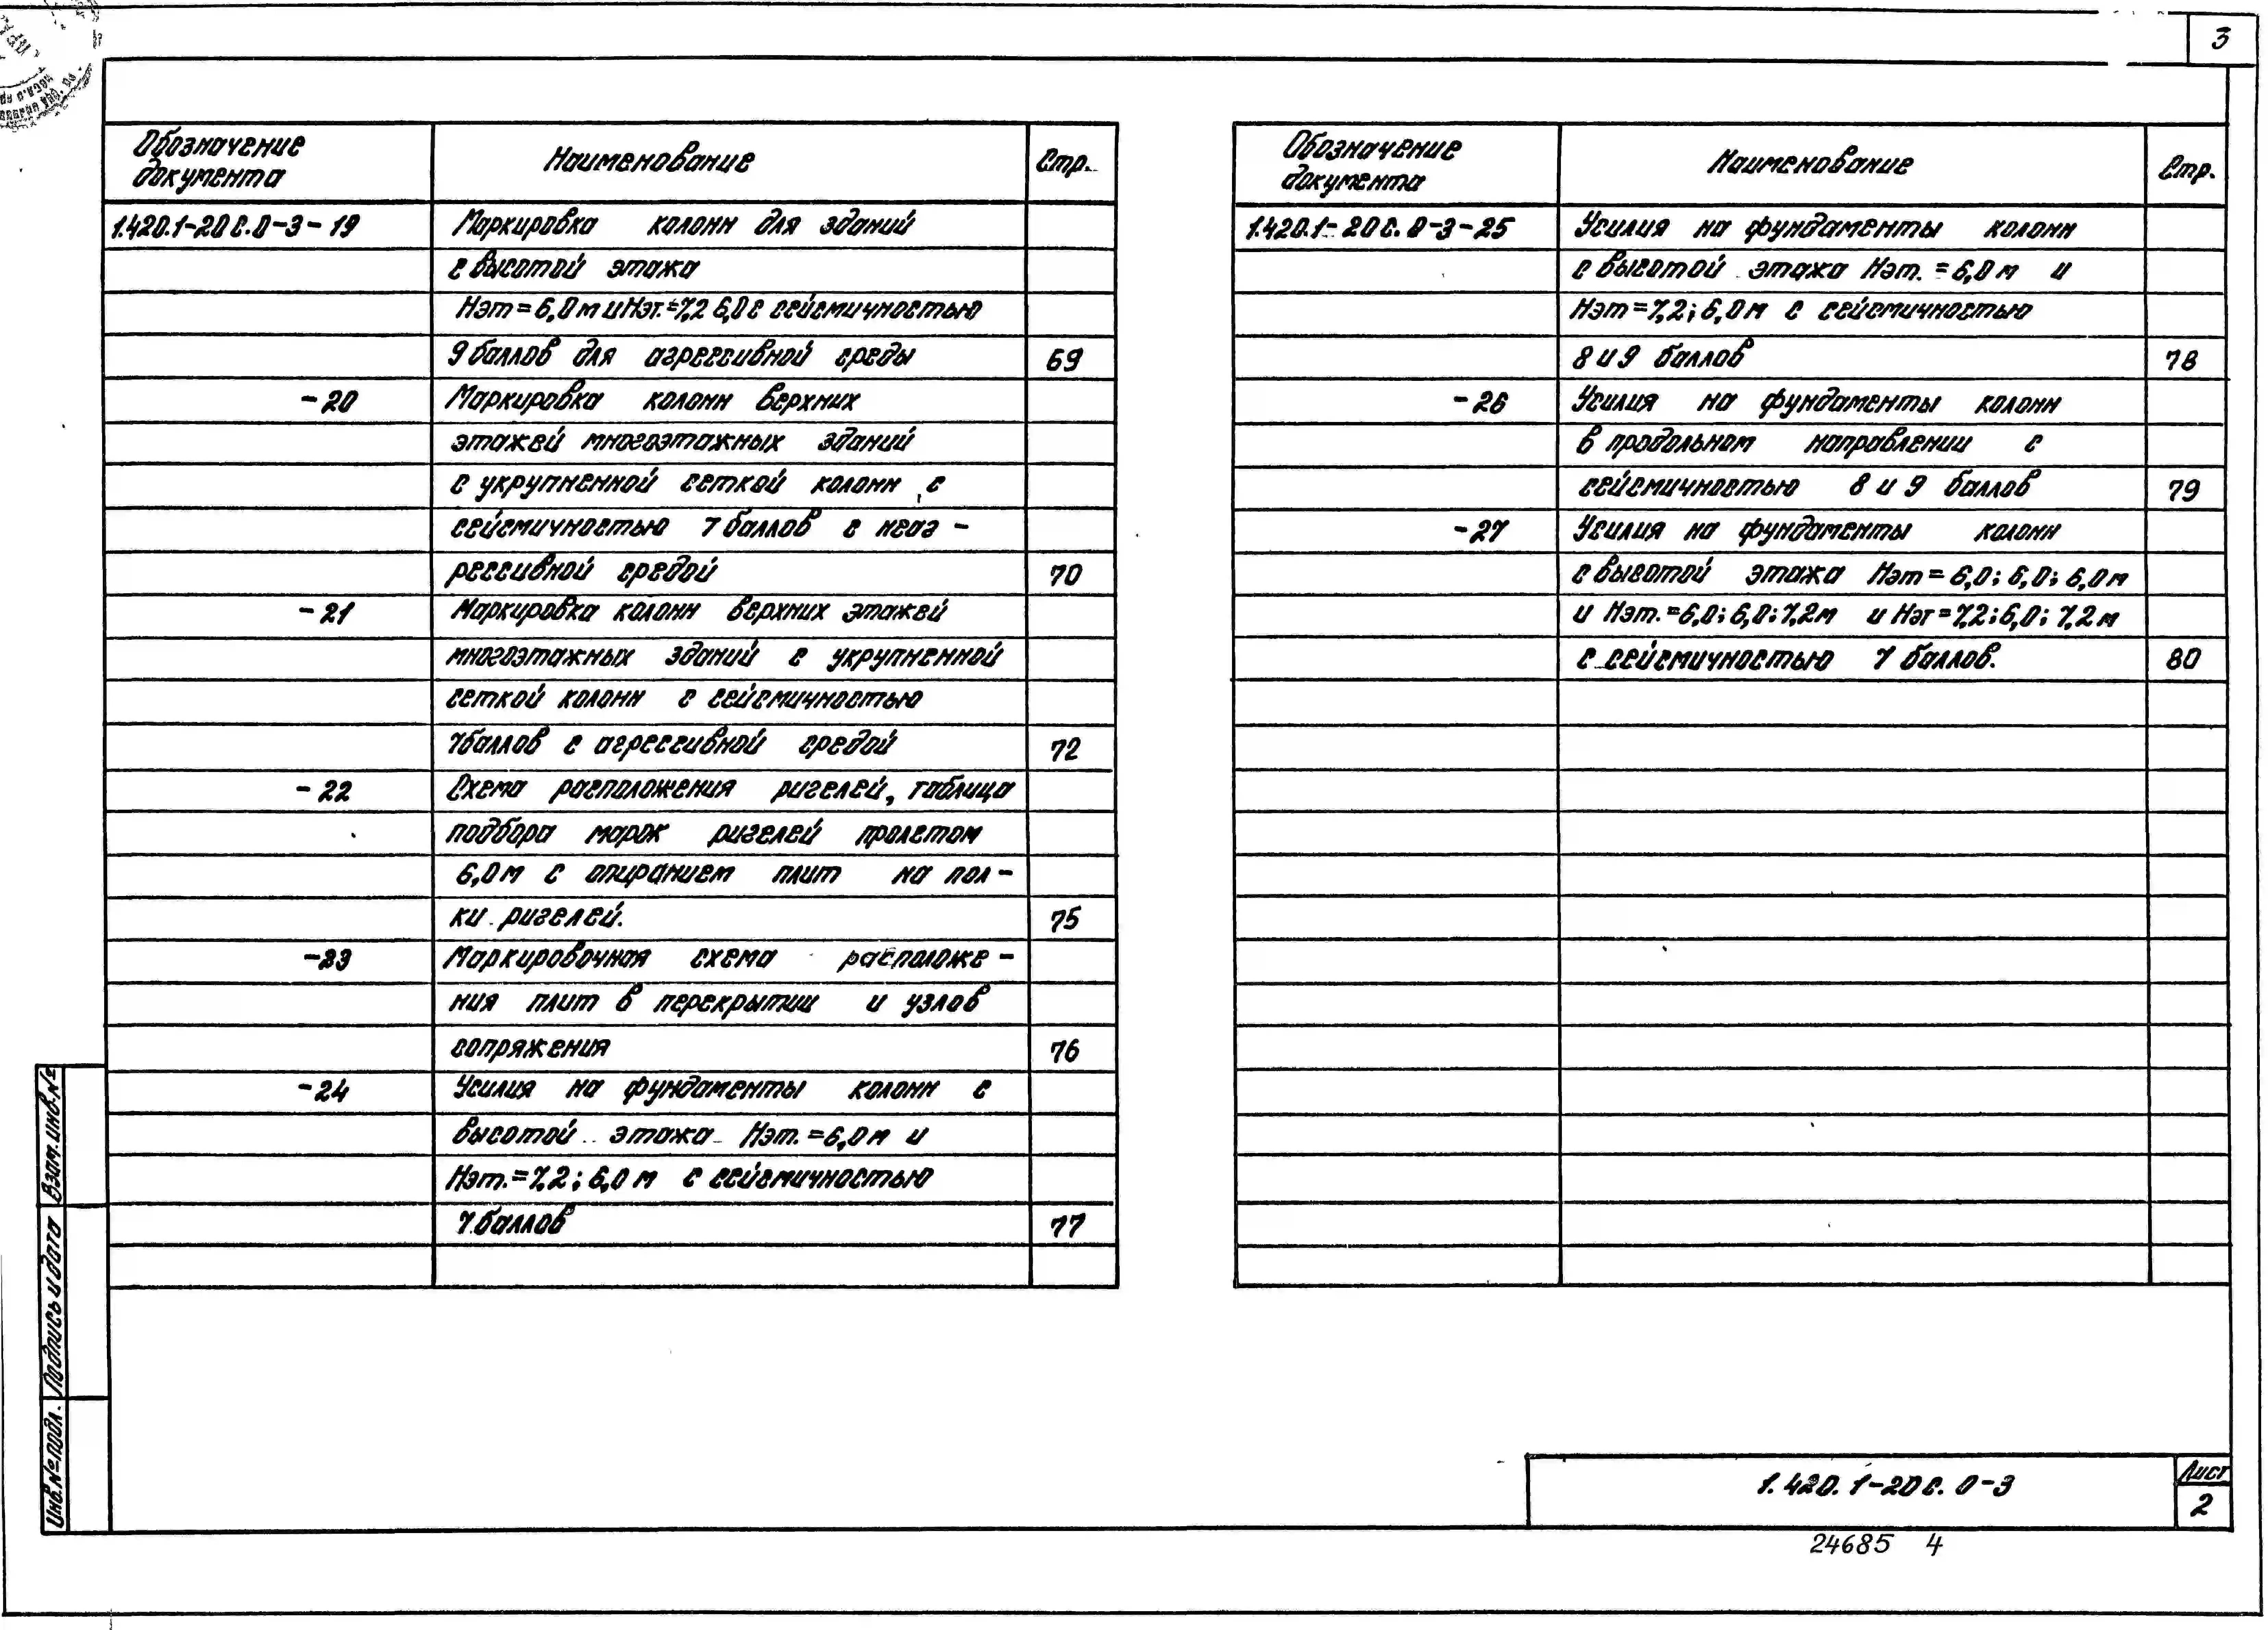 3
Обозначение документа
Наименование
Стр.
1.420.1-20С.0-3-19
Маркировка колонн для зданий
с высотой этажа
Нэт=6,0м и Нэт.=7,2 6,0 с сейсмичностью
9 баллов для агрессивной среды
69
-20
Маркировка колонн верхних
этажей многоэтажных зданий
с укрупненной сеткой колонн, с
сейсмичностью 7 баллов с неаг-
рессивной средой
70
-21
Маркировка колонн верхних этажей
многоэтажных зданий с укрупненной
сеткой колонн с сейсмичностью
7 баллов с агрессивной средой
72
-22
Схема расположения ригелей, таблица
подбора марок ригелей пролетом
6,0м с опиранием плит на пол-
ки ригелей.
75
-23
Маркировочная схема расположе-
ния плит в перекрытии и узлов
сопряжения
76
-24
Усилия на фундаменты колонн с
высотой этажа Нэт.=6,0м и
Нэт.=7,2; 6,0 м с сейсмичностью
7 баллов
77
Обозначение документа
Наименование
Стр.
1.420.1-20С.0-3-25
Усилия на фундаменты колонн
с высотой этажа Нэт.=6,0м и
Нэт=7,2; 6,0м с сейсмичностью
8 и 9 баллов
78
-26
Усилия на фундаменты колонн
в продольном направлении с
сейсмичностью 8 и 9 баллов
79
-27
Усилия на фундаменты колонн
с высотой этажа Нэт=6,0; 6,0; 6,0м
и Нэт.=6,0; 6,0; 7,2м и Нэт=7,2; 6,0; 7,2м
с сейсмичностью 7 баллов.
80
Взам.инв.№
Подпись и дата
Инв.№подл.
1.420.1-20С.0-3
Лист
2
24685 4